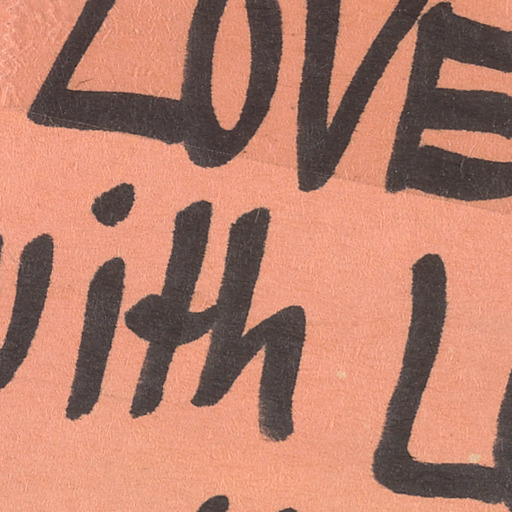 LOVE
with L